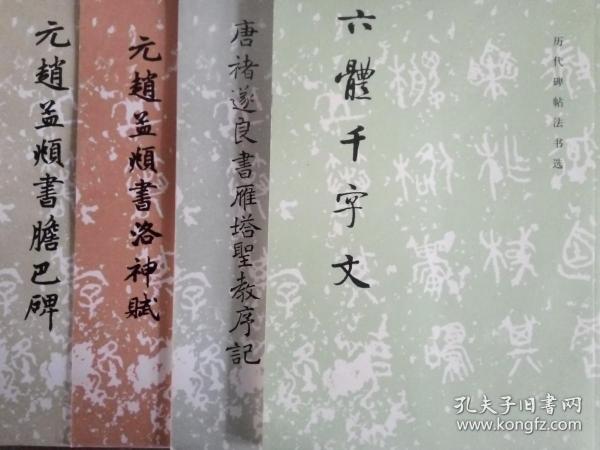 历代碑帖法书选
六體千字文
唐褚遂良書雁塔聖教序記
元趙孟頫書洛神賦
元趙孟頫書膽巴碑
孔夫子旧书网
www.kongfz.com